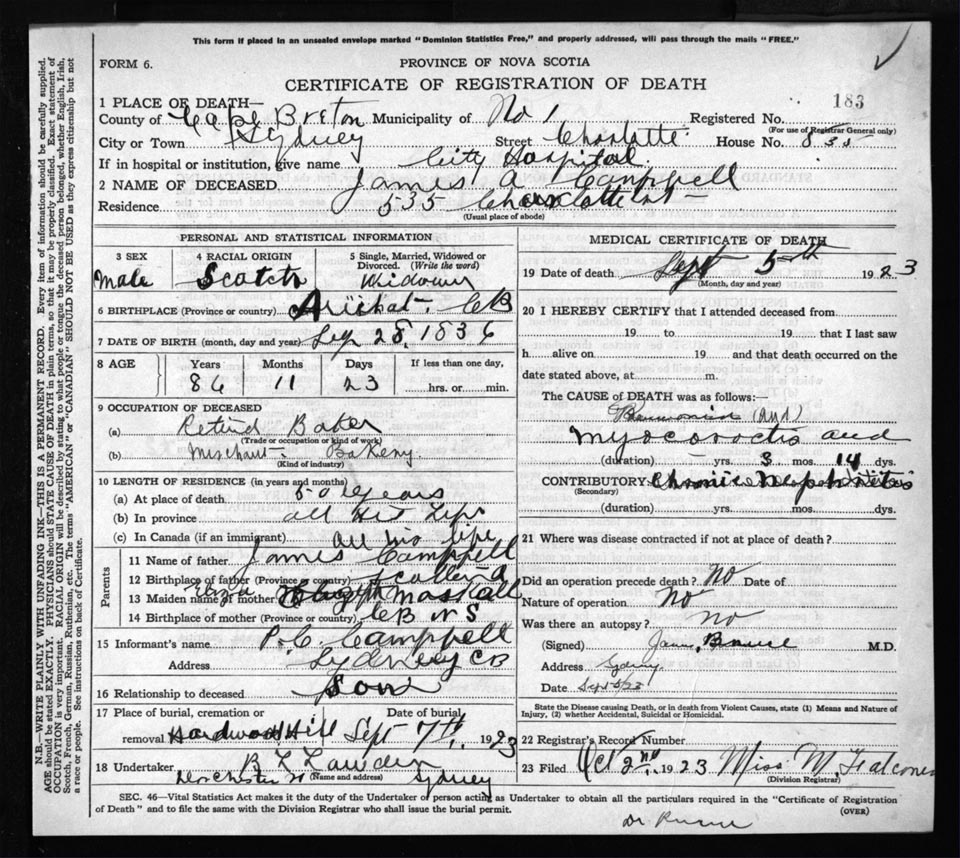 This form if placed in an unsealed envelope marked "Dominion Statistics Free," and properly addressed, will pass through the mails "FREE."
FORM 6.
PROVINCE OF NOVA SCOTIA
CERTIFICATE OF REGISTRATION OF DEATH
183
1 PLACE OF DEATH—
County of Cape Breton Municipality of No 1 Registered No.
(For use of Registrar General only)
City or Town Sydney Street Charlotte House No. 535
If in hospital or institution, give name City Hospital
2 NAME OF DECEASED James A Campbell
Residence 535 Charlotte st
(Usual place of abode)
PERSONAL AND STATISTICAL INFORMATION
3 SEX 4 RACIAL ORIGIN 5 Single, Married, Widowed or Divorced. (Write the word)
Male Scotch Widower
6 BIRTHPLACE (Province or country) Arichat - CB
7 DATE OF BIRTH (month, day and year) Sep 28, 1836
8 AGE Years Months Days If less than one day,
86 11 23 hrs. or min.
9 OCCUPATION OF DECEASED
(a) Retired Baker
(Trade or occupation or kind of work)
(b) Merchant - Bakery
(Kind of industry)
10 LENGTH OF RESIDENCE (in years and months)
(a) At place of death 50 Years
(b) In province all His Life
(c) In Canada (if an immigrant) all his life
Parents
11 Name of father James Campbell
12 Birthplace of father (Province or country)
13 Maiden name of mother
14 Birthplace of mother (Province or country) CB NS
15 Informant's name P. C. Campbell
Address Sydney CB
16 Relationship to deceased Son
17 Place of burial, cremation or removal Hardwood Hill Date of burial, Sept 7th, 1923
18 Undertaker
Dorchester St (Name and address) Sydney
MEDICAL CERTIFICATE OF DEATH
19 Date of death Sept 5th 1923
(Month, day and year)
20 I HEREBY CERTIFY that I attended deceased from
19 to 19 that I last saw
h alive on 19 and that death occurred on the
date stated above, at m.
The CAUSE of DEATH was as follows:
and
(duration) yrs. 3 mos. 14 dys.
CONTRIBUTORY: Chronic Nephritis
(Secondary)
(duration) yrs. mos. dys.
21 Where was disease contracted if not at place of death?
Did an operation precede death? No Date of
Nature of operation No
Was there an autopsy? No
(Signed) M.D.
Address Sydney
Date Sept 5/23
State the Disease causing Death, or in death from Violent Causes, state (1) Means and Nature of Injury, (2) whether Accidental, Suicidal or Homicidal.
22 Registrar's Record Number
23 Filed Oct 2nd, 1923 Miss M. Falconer
(Division Registrar)
SEC. 46—Vital Statistics Act makes it the duty of the Undertaker or person acting as Undertaker to obtain all the particulars required in the "Certificate of Registration
of Death" and to file the same with the Division Registrar who shall issue the burial permit.
(OVER)
N.B.—WRITE PLAINLY WITH UNFADING INK—THIS IS A PERMANENT RECORD. Every item of information should be carefully supplied.
AGE should be stated EXACTLY. PHYSICIANS should STATE CAUSE OF DEATH in plain terms, so that it may be properly classified. Exact statement of
OCCUPATION is very important. RACIAL ORIGIN will be described by stating to what people or tongue the deceased person belonged, whether English, Irish,
Scotch, French, German, Russian, Ruthenian, etc. The terms "AMERICAN" or "CANADIAN" SHOULD NOT BE USED as they express citizenship but not
a race or people. See instructions on back of Certificate.